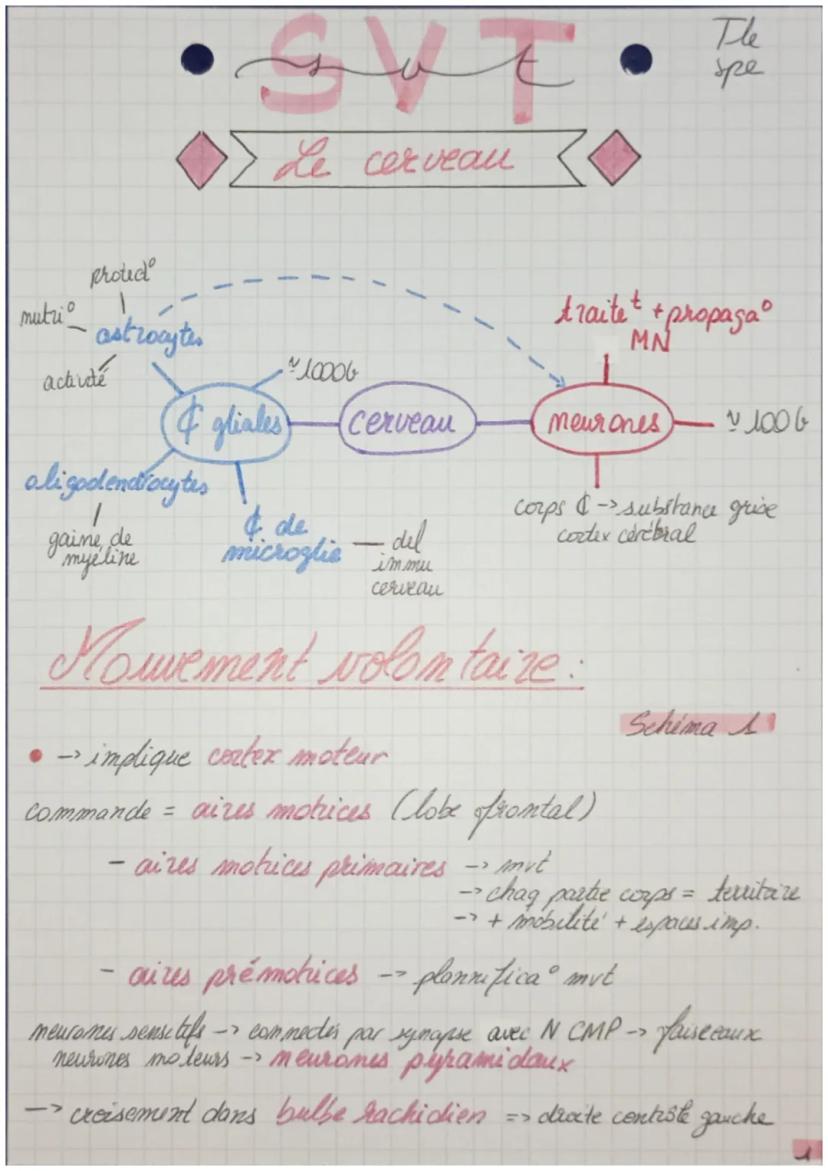 SVT
svt
Tle
spe
Le cerveau
protect°
nutri°
astrocytes
activité
traite^t + propaga°
MN
≈ 1000b
₵ gliales
cerveau
neurones
≈ 100b
oligodendrocytes
gaine de
myéline
₵ de
microglie
def
immu
cerveau
corps ₵ -> substance grise
cortex cérébral
Mouvement volontaire :
Schéma 1
• -> implique cortex moteur
commande = aires motrices (lobe frontal)
- aires motrices primaires -> mvt
-> chaq partie corps = territoire
-> + mobilité + espaces imp.
- aires prémotrices -> plannifica° mvt
neurones sensitifs -> connectés par synapse avec N CMP -> faisceaux
neurones moteurs -> neurones pyramidaux
-> croisement dans bulbe rachidien => droite contrôle gauche
1